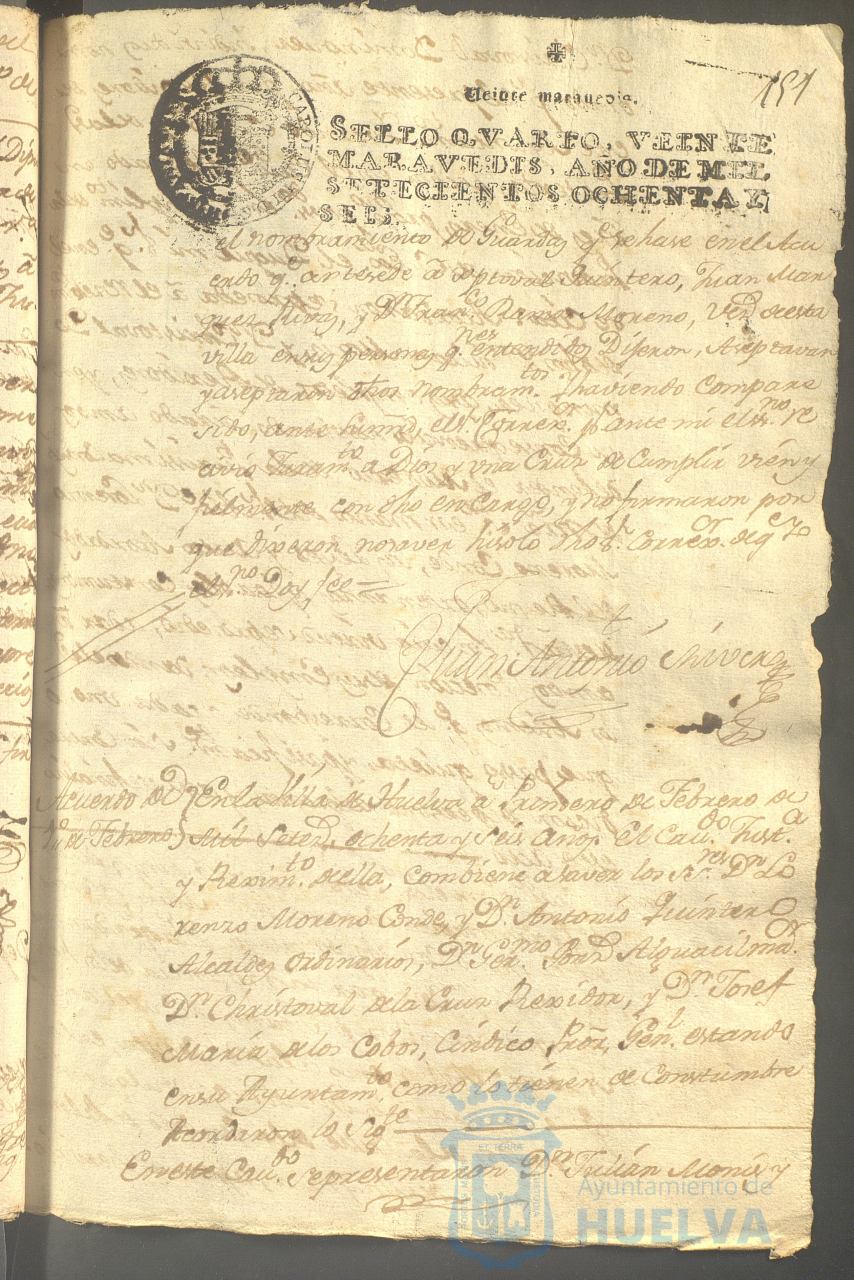 151
Veinte maravedis.
SELLO QVARTO, VEINTE
MARAVEDIS, AÑO DE MIL
SETECIENTOS OCHENTA Y
SEIS.
el nombramiento de Guardas q.e se hase en el Acu
erdo q.e antesede à Xptoval Quintero, Juan Mar
quez Rivas, y D.n Fran.co Ramos Moreno, Vez.s de esta
villa en sus personas q.nes entendidos Dijeron, Aseptavan
y aseptaron dhos nombram.tos y haviendo Compare
sido, ante su md, el S.r Correx.or p.r ante mi el es.no re
civió Juram.to a Dios y una Cruz de Cumplir vien y
fielmente con dho en Cargo, y no firmaron por
que dixeron no saver hisolo dho S.r Correx.or de q.e Yo
el es.no Doy fee
Juan Antonio
Acuerdo de
1.o de Febrero
En la Villa de Huelva a Primero de Febrero de
Mil Seted.s ochenta y Seis años El Cav.do Just.a
y Reximi.to de ella, combiene a saver los S.res D.n Lo
renzo Moreno Conde, y D.n Antonio Quintero
Alcaldes ordinarios, D.n Ger.mo Alguacil ma.or
D.n Christoval de la Cruz Rexidor, y D.n Josef
María de los Cobos, Cindico Pror, Gen.l estando
en su Ayuntam.to, como lo tienen de Constumbre
Acordaron lo Sig.te
En este Cav.do Se presentaron D.n Julián Monis y
Ayuntamiento de
HUELVA